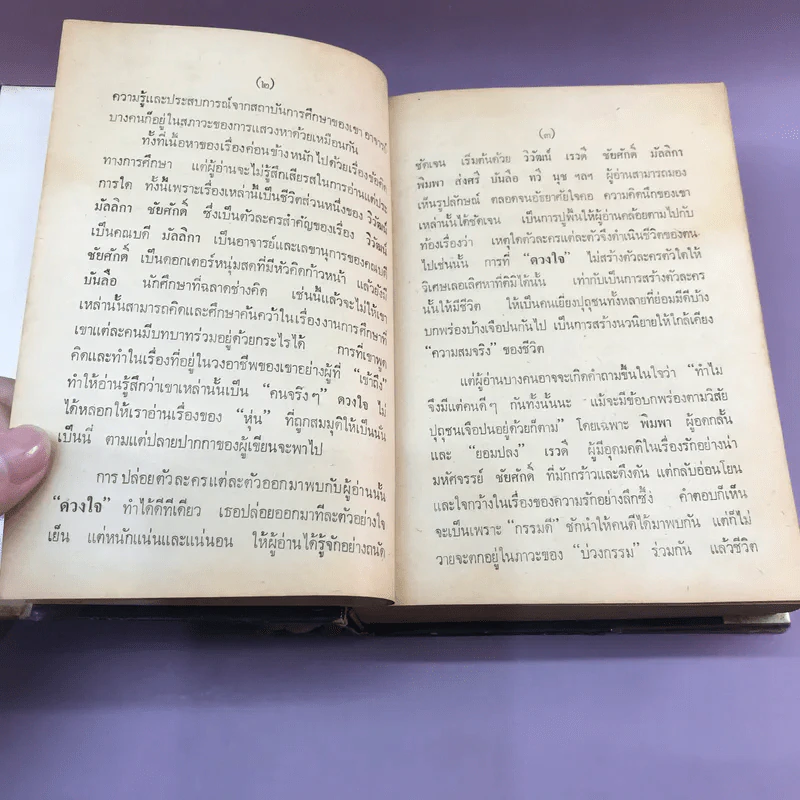 (๒)
ความรู้และประสบการณ์จากสถาบันการศึกษาของเขา อาจารย์
บางคนก็อยู่ในสภาวะของการแสวงหาด้วยเหมือนกัน
ทั้งที่เนื้อหาของเรื่องค่อนข้างหนักไปด้วยเรื่องข้อคิด
ทางการศึกษา แต่ผู้อ่านจะไม่รู้สึกเสียรสในการอ่านแต่ประ
การใด ทั้งนี้เพราะเรื่องเหล่านี้เป็นชีวิตส่วนหนึ่งของ วิวัฒน์
มัลลิกา ชัยศักดิ์ ซึ่งเป็นตัวละครสำคัญของเรื่อง วิวัฒน์
เป็นคณบดี มัลลิกา เป็นอาจารย์และเลขานุการของคณบดี
ชัยศักดิ์ เป็นดอกเตอร์หนุ่มสดที่มีหัวคิดก้าวหน้า แล้วยังมี
บันลือ นักศึกษาที่ฉลาดช่างคิด เช่นนี้แล้วจะไม่ให้เขา
เหล่านั้นสามารถคิดและศึกษาค้นคว้าในเรื่องงานการศึกษาที่
เขาแต่ละคนมีบทบาทร่วมอยู่ด้วยกระไรได้ การที่เขาพูด
คิดและทำในเรื่องที่อยู่ในวงอาชีพของเขาอย่างผู้ที่ “เข้าถึง”
ทำให้อ่านรู้สึกว่าเขาเหล่านั้นเป็น “คนจริงๆ” ดวงใจ ไม่
ได้หลอกให้เราอ่านเรื่องของ “หุ่น” ที่ถูกสมมุติให้เป็นนั่น
เป็นนี่ ตามแต่ปลายปากกาของผู้เขียนจะพาไป
การปล่อยตัวละครแต่ละตัวออกมาพบกับผู้อ่านนั้น
“ดวงใจ” ทำได้ดีทีเดียว เธอปล่อยออกมาทีละตัวอย่างใจ
เย็น แต่หนักแน่นและแน่นอน ให้ผู้อ่านได้รู้จักอย่างถนัด
(๓)
ชัดเจน เริ่มต้นด้วย วิวัฒน์ เรวดี ชัยศักดิ์ มัลลิกา
พิมพา ส่งศรี บันลือ ทวี นุช ฯลฯ ผู้อ่านสามารถมอง
เห็นรูปลักษณ์ ตลอดจนอัธยาศัยใจคอ ความคิดนึกของเขา
เหล่านั้นได้ชัดเจน เป็นการปูพื้นให้ผู้อ่านคล้อยตามไปกับ
ท้องเรื่องว่า เหตุใดตัวละครแต่ละตัวจึงดำเนินชีวิตของตน
ไปเช่นนั้น การที่ “ดวงใจ” ไม่สร้างตัวละครตัวใดให้
วิเศษเลอเลิศหาที่ติมิได้นั้น เท่ากับเป็นการสร้างตัวละคร
นั้นให้มีชีวิต ให้เป็นคนเยี่ยงปุถุชนทั้งหลายที่ย่อมมีดีบ้าง
บกพร่องบ้างเจือปนกันไป เป็นการสร้างนวนิยายให้ใกล้เคียง
“ความสมจริง” ของชีวิต
แต่ผู้อ่านบางคนอาจจะเกิดคำถามขึ้นในใจว่า “ทำไม
จึงมีแต่คนดีๆ กันทั้งนั้นนะ แม้จะมีข้อบกพร่องตามวิสัย
ปุถุชนเจือปนอยู่ด้วยก็ตาม” โดยเฉพาะ พิมพา ผู้อดกลั้น
และ “ยอมปลง” เรวดี ผู้มีอุดมคติในเรื่องรักอย่างน่า
มหัศจรรย์ ชัยศักดิ์ ที่มักกร้าวและดึงดัน แต่กลับอ่อนโยน
และใจกว้างในเรื่องของความรักอย่างลึกซึ้ง คำตอบก็เห็น
จะเป็นเพราะ “กรรมดี” ชักนำให้คนดีได้มาพบกัน แต่ก็ไม่
วายจะตกอยู่ในภาวะของ “บ่วงกรรม” ร่วมกัน แล้วชีวิต